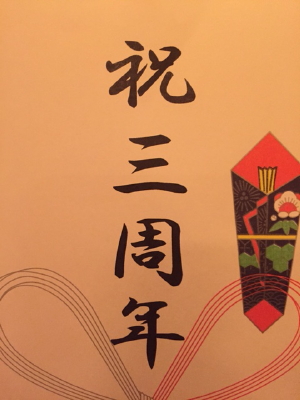 祝三周年